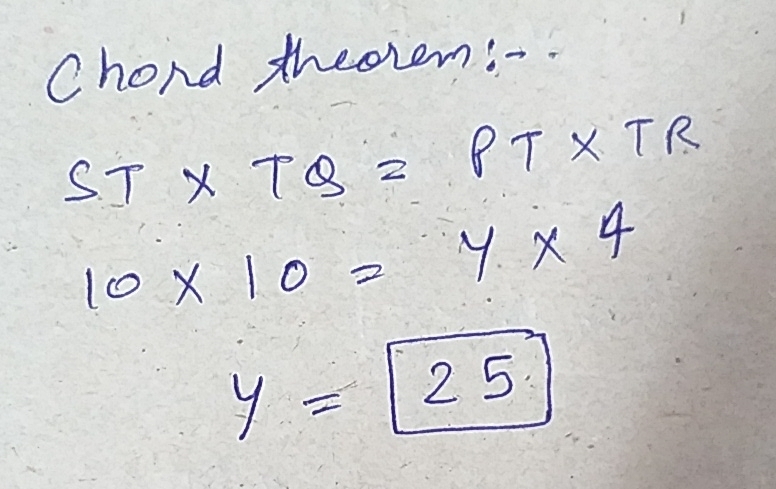 Chord theorem:--
ST x TQ = PT x TR
10 x 10 = y x 4
y = 25